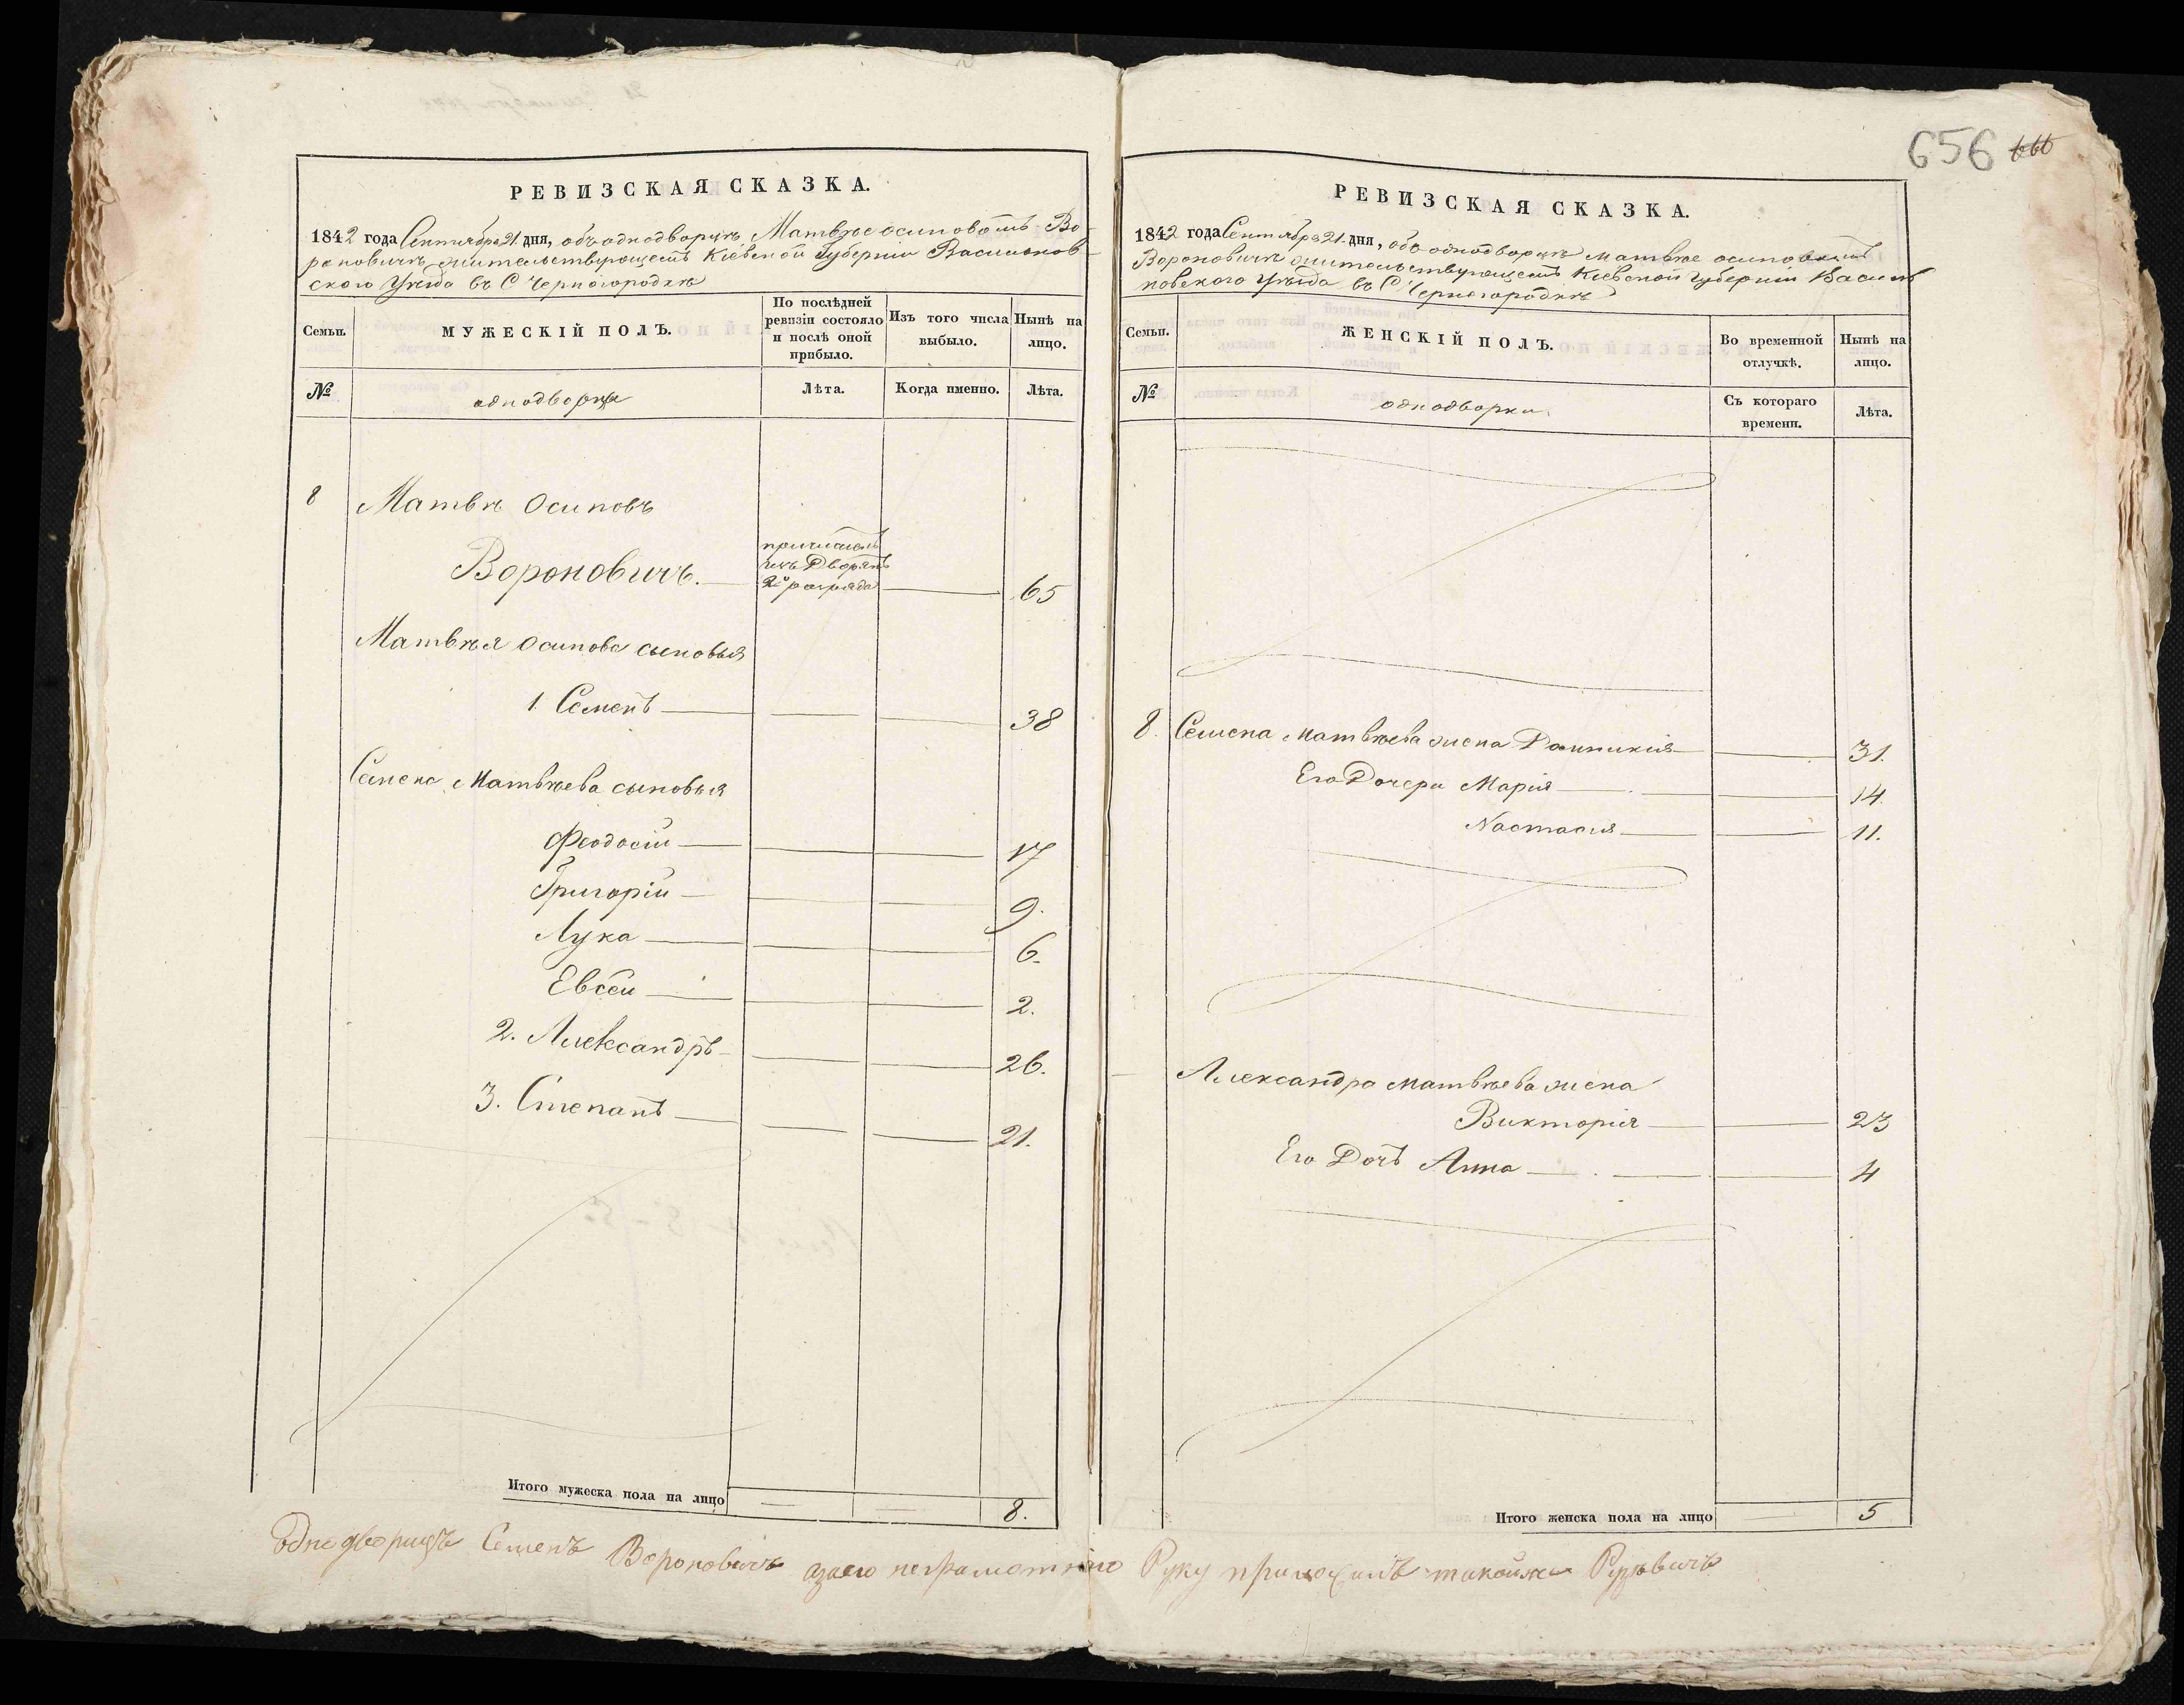 656 666
РЕВИЗСКАЯ СКАЗКА.
1842 года Сентября 21 дня, объ однодворцѣ Матвѣе осиповомъ Во-
роновичѣ жительствующемъ Кіевской Губерніи Васильков-
ского Уѣзда въ С Черногородкѣ
Семьи.
МУЖЕСКІЙ ПОЛЪ.
По послѣдней ревизіи состояло и послѣ оной прибыло.
Изъ того числа выбыло.
Нынѣ на лицо.
№
однодворцы
Лѣта.
Когда именно.
Лѣта.
8 Матвѣ Осиповъ
причислѣнъ
изъ Дворянъ
Вороновичъ. 2го разряда 65
Матвѣя Осипова сыновья
1. Семенъ 38
Семена Матвѣева сыновья
Феодосій 17
Григорій 9.
Лука 6.
Евсей 2.
2. Александръ 26.
3. Степанъ 21.
Итого мужеска пола на лицо 8.
РЕВИЗСКАЯ СКАЗКА.
1842 года Сентября 21 дня, объ однодворцѣ Матвѣе осиповомъ
Вороновичѣ жительствующемъ Кіевской Губерніи Василь
ковского Уѣзда въ С Черногородкѣ
Семьи.
ЖЕНСКІЙ ПОЛЪ.
Во временной отлучкѣ.
Нынѣ на лицо.
№
однодворки
Съ котораго времени.
Лѣта.
8. Семена Матвѣева жена Домникія 31.
Его Дочери Марія 14.
Настасия 11.
Александра Матвѣева жена
Викторія 23
Его Дочь Анна 4
Итого женска пола на лицо 5
Однодворецъ Семенъ Вороновичъ а за его неграмотного Руку приложилъ такойже